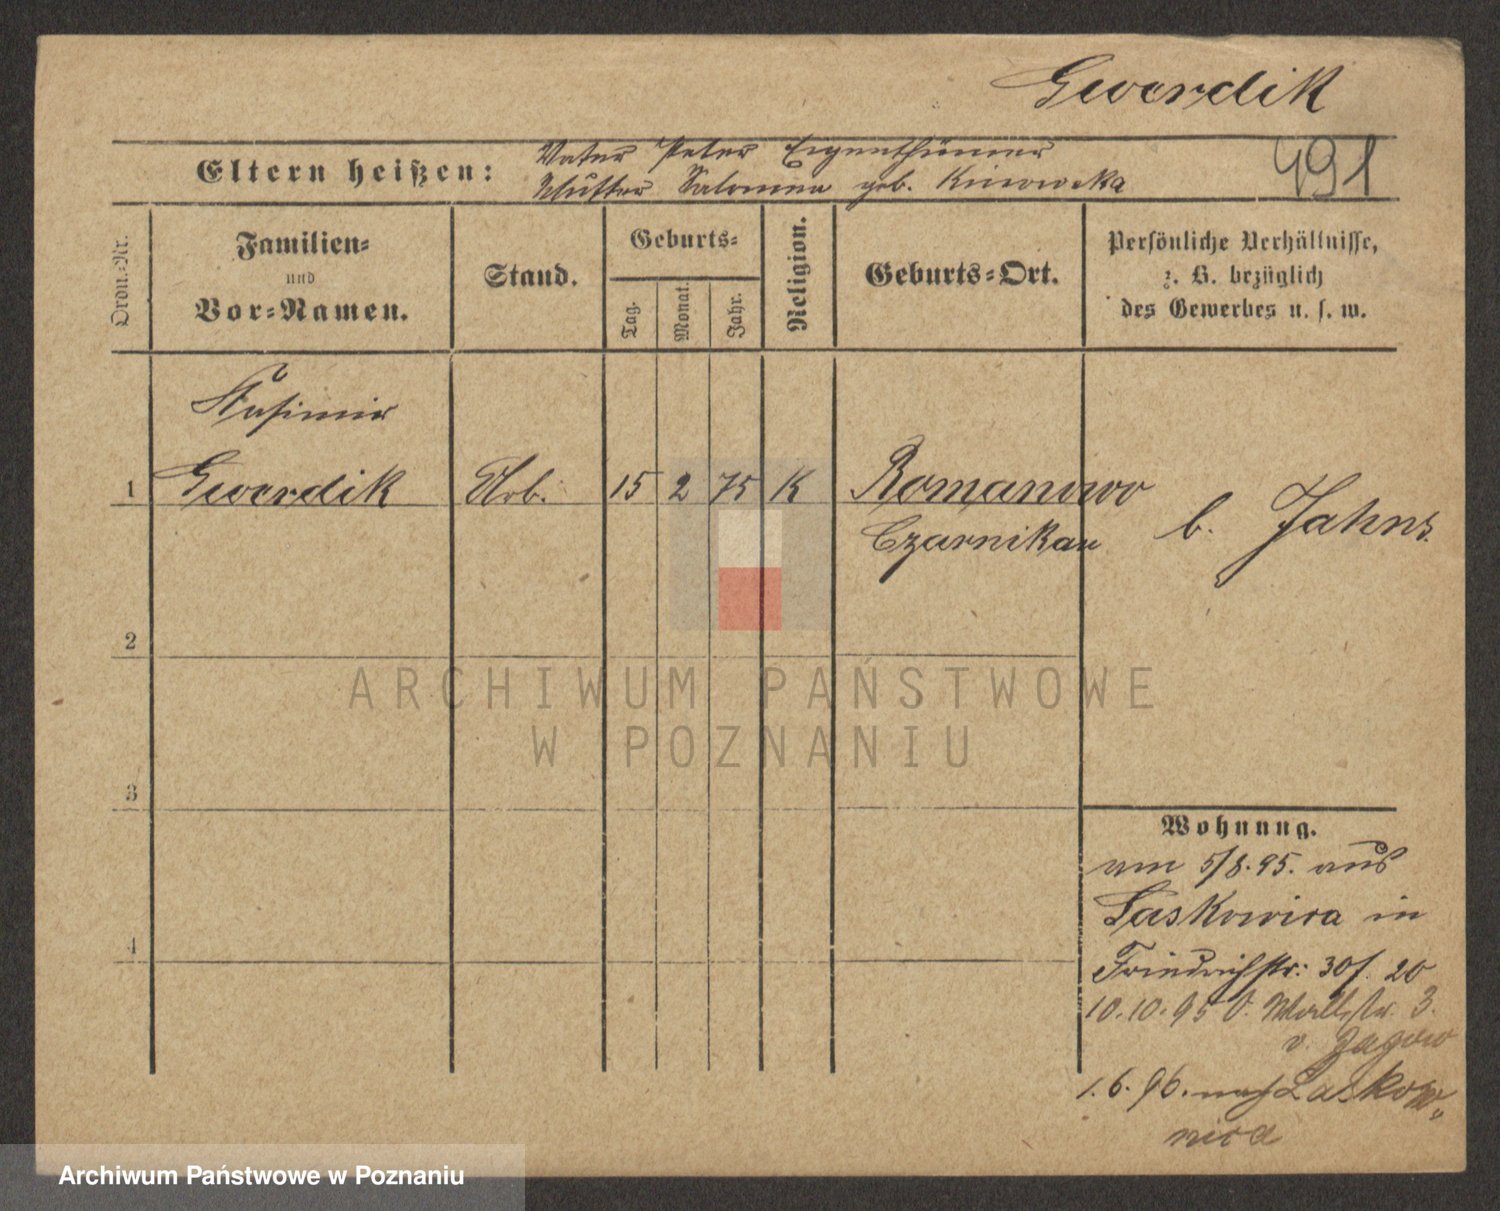 Gwerdik
Eltern heißen: Vater Peter Eigenthümer
Mutter Salomea geb.
491
Ordn.-Nr.
Familien-
und
Vor-Namen.
Stand.
Geburts-
Tag.
Monat.
Jahr.
Religion.
Geburts-Ort.
Persönliche Verhältnisse,
z. B. bezüglich
des Gewerbes u. s. w.
Kasimir
1 Gwerdik Arb. 15 2 75 K Romanowo
Czarnikau
b. Jahns.
2
3
4
Wohnung.
am 5/8.95. aus
Laskowica in
Friedrichstr: 30 f. 20
10.10.95 Wallstr. 3.
v. Jagow
1.6.96. nach Laskow-
nica
ARCHIWUM PAŃSTWOWE
W POZNANIU
Archiwum Państwowe w Poznaniu